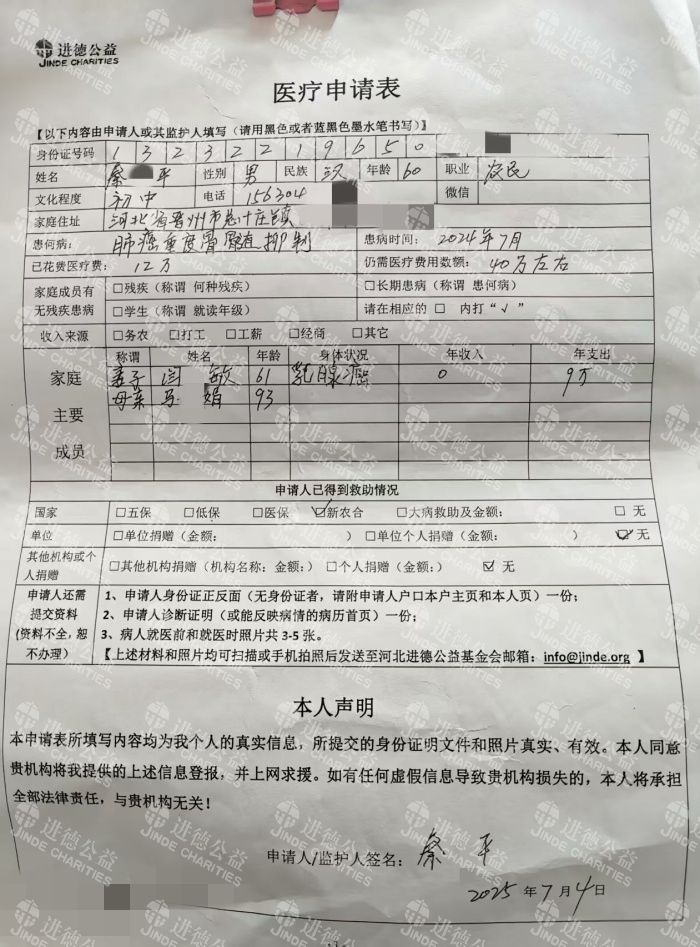 进德公益
JINDE CHARITIES
医疗申请表
【以下内容由申请人或其监护人填写（请用黑色或者蓝黑色墨水笔书写）】
身份证号码 1 3 2 3 2 2 1 9 6 5 0
姓名 秦 平 性别 男 民族 汉 年龄 60 职业 农民
文化程度 初中 电话 156304 微信
家庭住址 河北省晋州市总十庄镇
患何病： 肺癌重度骨髓抑制 患病时间： 2024年7月
已花费医疗费： 12万 仍需医疗费用数额： 40万左右
家庭成员有无残疾患病 □残疾（称谓 何种残疾） □长期患病（称谓 患何病）
□学生（称谓 就读年级） 请在相应的 □ 内打“√”
收入来源 □务农 □打工 □工薪 □经商 □其它
家庭主要成员 称谓 姓名 年龄 身体状况 年收入 年支出
妻子 闫 敏 61 乳腺癌 0 9万
母亲 马 娟 93
申请人已得到救助情况
国家 □五保 □低保 □医保 ☑新农合 □大病救助及金额： □ 无
单位 □单位捐赠（金额： ） □单位个人捐赠（金额： ） ☑无
其他机构或个人捐赠 □其他机构捐赠（机构名称：金额：） □个人捐赠（金额：） ☑ 无
申请人还需提交资料（资料不全，恕不办理） 1、申请人身份证正反面（无身份证者，请附申请人户口本户主页和本人页）一份；
2、申请人诊断证明（或能反映病情的病历首页）一份；
3、病人就医前和就医时照片共 3-5 张。
【上述材料和照片均可扫描或手机拍照后发送至河北进德公益基金会邮箱：info@jinde.org 】
本人声明
本申请表所填写内容均为我个人的真实信息，所提交的身份证明文件和照片真实、有效。本人同意
贵机构将我提供的上述信息登报，并上网求援。如有任何虚假信息导致贵机构损失的，本人将承担
全部法律责任，与贵机构无关！
申请人/监护人签名： 秦 平
2025 年 7 月 4 日